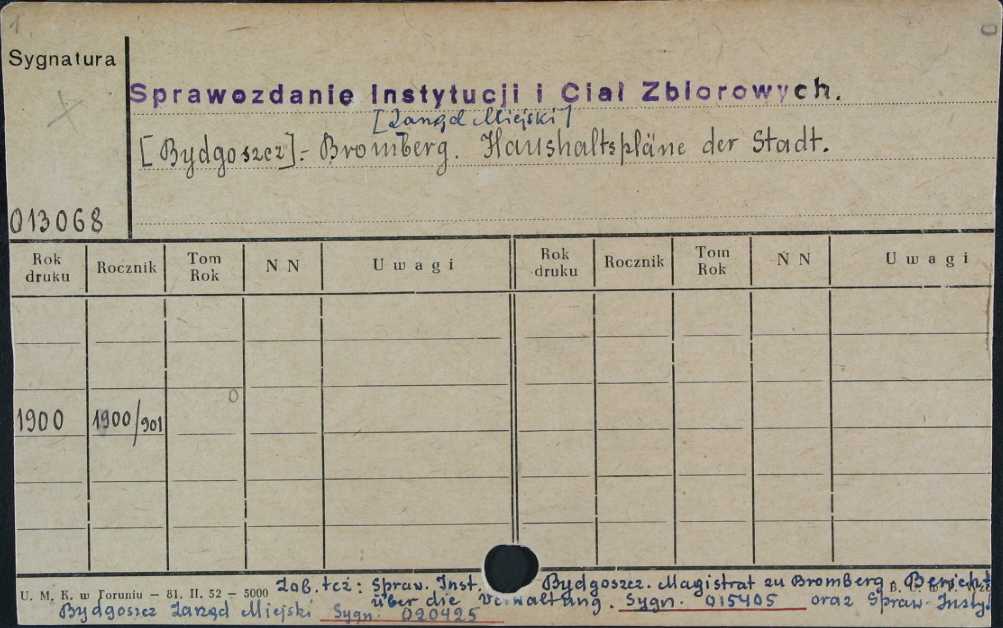 Sygnatura
Sprawozdanie Instytucji i Ciał Zbiorowych.
[Zarząd Miejski]
[Bydgoszcz].- Bromberg. Haushaltspläne der Stadt.
013068
Rok druku Rocznik Tom Rok N N Uwagi Rok druku Rocznik Tom Rok N N Uwagi
1900 1900/901
U. M. K. w Toruniu — 81. II. 52 — 5000 Zob. też: Spraw. Inst. Bydgoszcz. Magistrat zu Bromberg. Bericht
über die Verwaltung. Sygn. 015405 oraz Spraw. Insty.
Bydgoszcz Zarząd Miejski Sygn. 020425